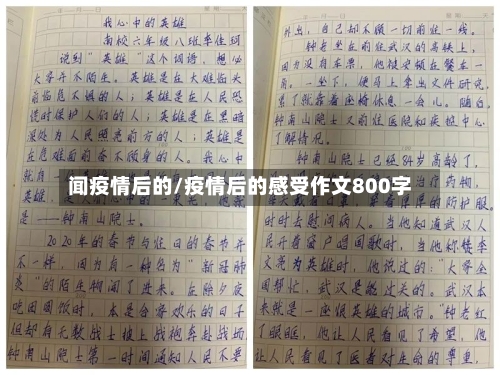 我心中的英雄
南校六年级八班李佳珂
说到"英雄"这个词语，想必
大家并不陌生。英雄是在大难临头
前临危不惧的人；英雄是在人民恐
慌时保护人们的人；英雄是在黑暗
深处为人民照亮前方的人；英雄是
在危难面前奋不顾身的人。我心中
就
英雄，是
是——钟南山院士。
2020年的春节与往日的春节并
不一样，因为有一种名为"新冠肺
炎"的陌生物闯了进来。在除夕夜
吃团圆饭时，本是合家欢乐的日子
但却有无数战士披上战袍奔赴战场
钟南山院士第一时间通知人民不要
外出，自己却不顾一切前往一线。
钟老坐在前往武汉的高铁上，
因为没有车票，他被安顿在餐车一
角。一坐下，便马上拿出文件研究，
累了就靠着座椅休息一会儿。随后，
钟南山院士又前往医院和疾控中心
了解情况。
钟南山院士已经84岁高龄了，
治疗药物，
的防护服。
时时去慰问病人。当他知道武汉人
民开着窗户唱国歌时，当他称赞李
文亮为英雄时，他说过的："大家全
国帮忙，武汉是能过关的。武汉本
来就是一座很英雄的城市。"钟老红
了眼眶，他让人民看见了希望，他
让人民看见了医者对生命的尊重，
闻疫情后的/疫情后的感受作文800字